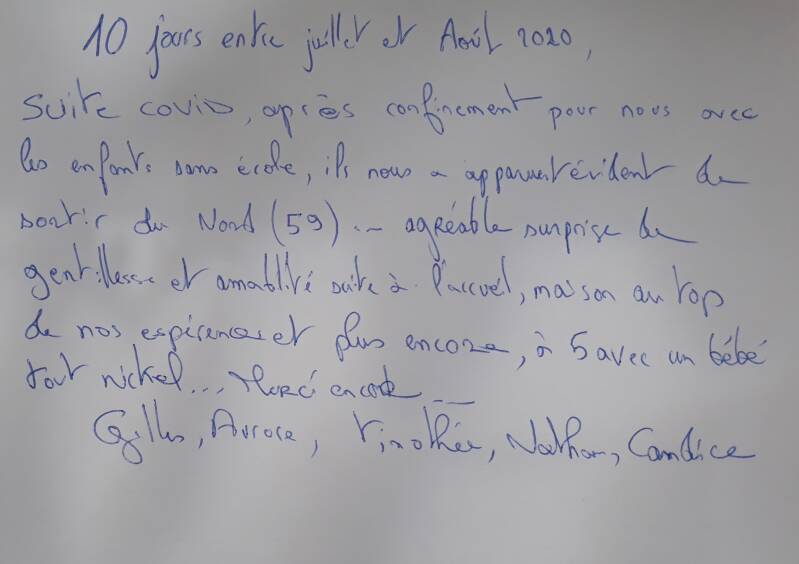 10 jours entre juillet et Août 2020,
Suite covid, après confinement pour nous avec
les enfants sans école, ils nous a apparut évident de
sortir du Nord (59) ... agréable surprise de
gentillesse et amablité suite à l'accuel, maison au top
de nos espérences et plus encore, à 5 avec un bébé
tout nickel... Merci encore ...
Gilles, Aurore, Timothée, Nathan, Candice